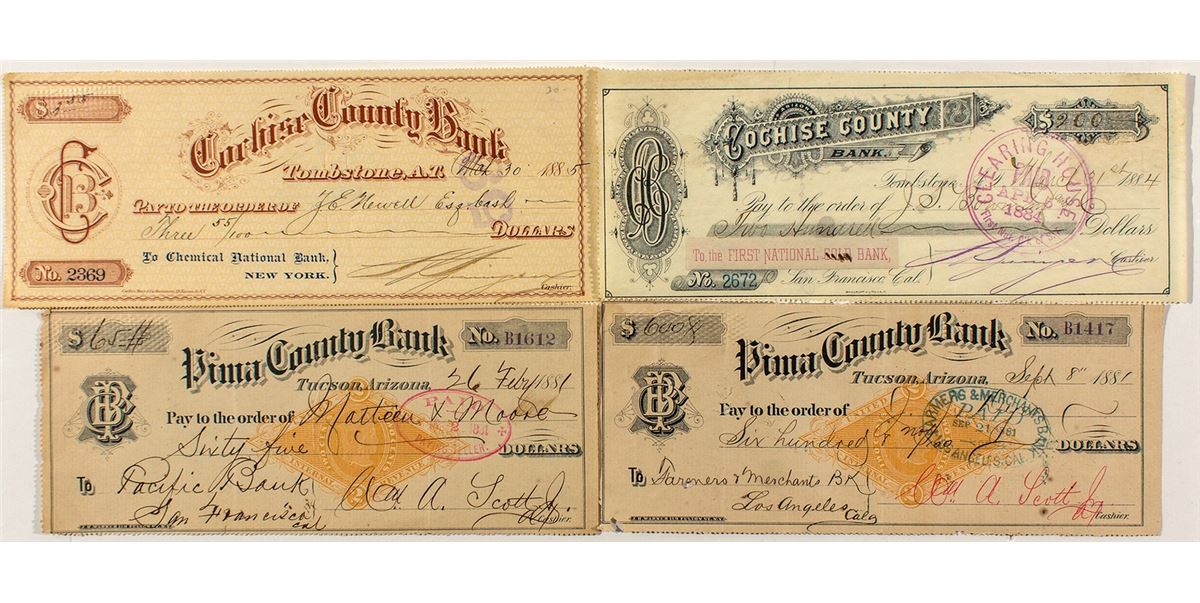 $ 3 55
Cochise County Bank
Tombstone, A.T. Mch 30 1885
PAY TO THE ORDER OF J.E. Newell Esq. Cash
Three 55/100
DOLLARS
To Chemical National Bank,
NEW YORK.
No. 2369
Cashier.
$ 200
COCHISE COUNTY
BANK
Tombstone, March 31st 1884
Pay to the order of J. S.
Two Hundred Dollars
To, the FIRST NATIONAL GOLD BANK,
No. 2672 San Francisco, Cal. Cashier
CLEARING HOUSE
PAID
1884
$ 65
Pima County Bank
No. B1612
Tucson, Arizona, 26 Feby 1881
Pay to the order of & Moore
Sixty five DOLLARS
To Pacific Bank
San Francisco
Cal
Wm A. Scott Jr.
Cashier.
PAID
INTERNAL REVENUE
$ 600
Pima County Bank
No. B1417
Tucson, Arizona, Sept 8" 1881
Pay to the order of J.
Six hundred & no/100 DOLLARS
To Farmers & Merchants Bk
Los Angeles
Cala
Wm A. Scott Jr
Cashier.
FARMERS & MERCHANTS BANK
PAID
SEP 21 1881
LOS ANGELES, CAL.